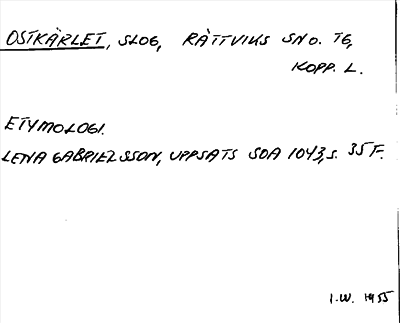 OSTKÄRLET, SLOG, RÄTTVIKS SN O. TG,
KOPP. L.
ETYMOLOGI.
LENA GABRIELSSON, UPPSATS SOA 1043, S. 35 F.
I.W. 1955